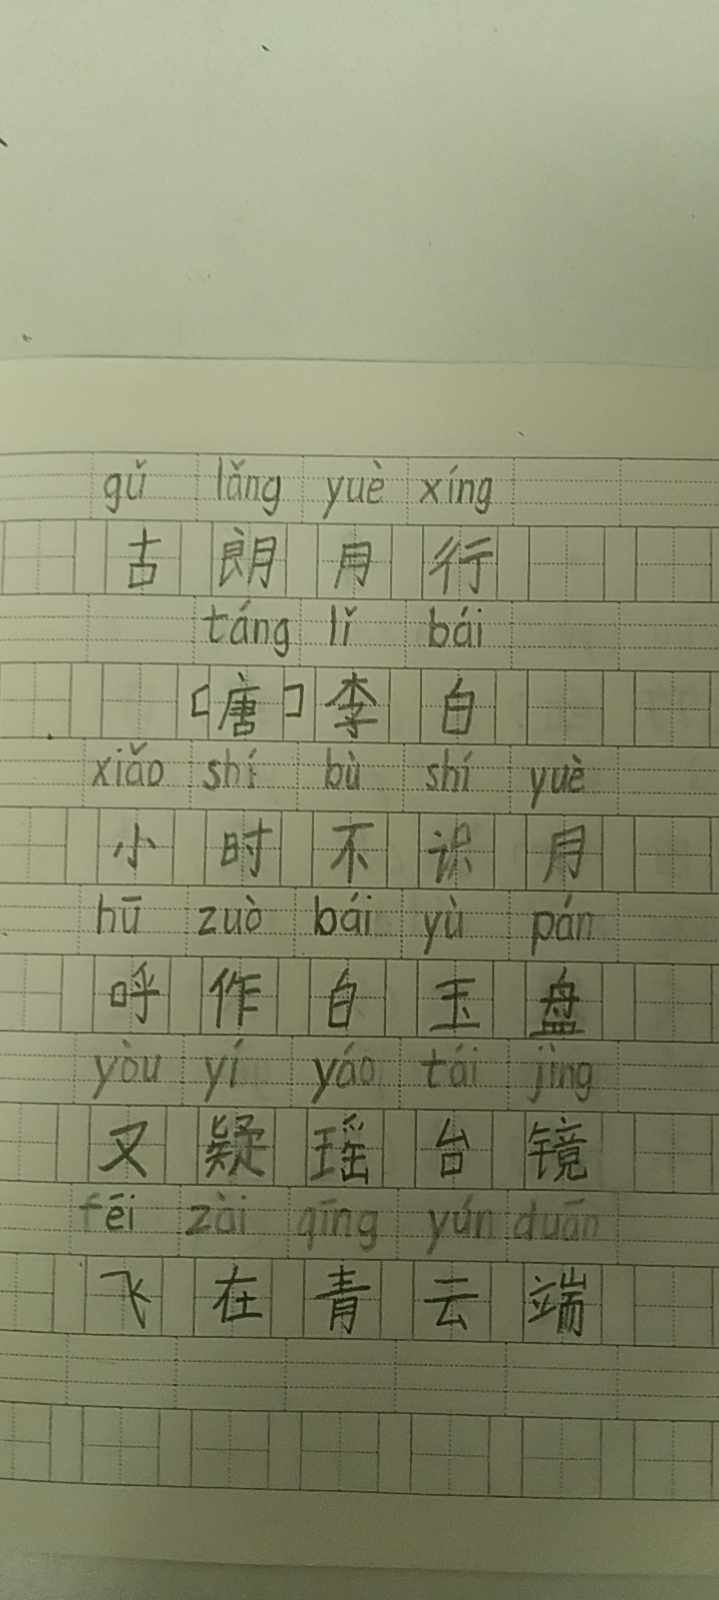 gǔ lǎng yuè xíng
古朗月行
táng lǐ bái
［唐］李白
xiǎo shí bù shí yuè
小时不识月
hū zuò bái yù pán
呼作白玉盘
yòu yí yáo tái jìng
又疑瑶台镜
fēi zài qīng yún duān
飞在青云端